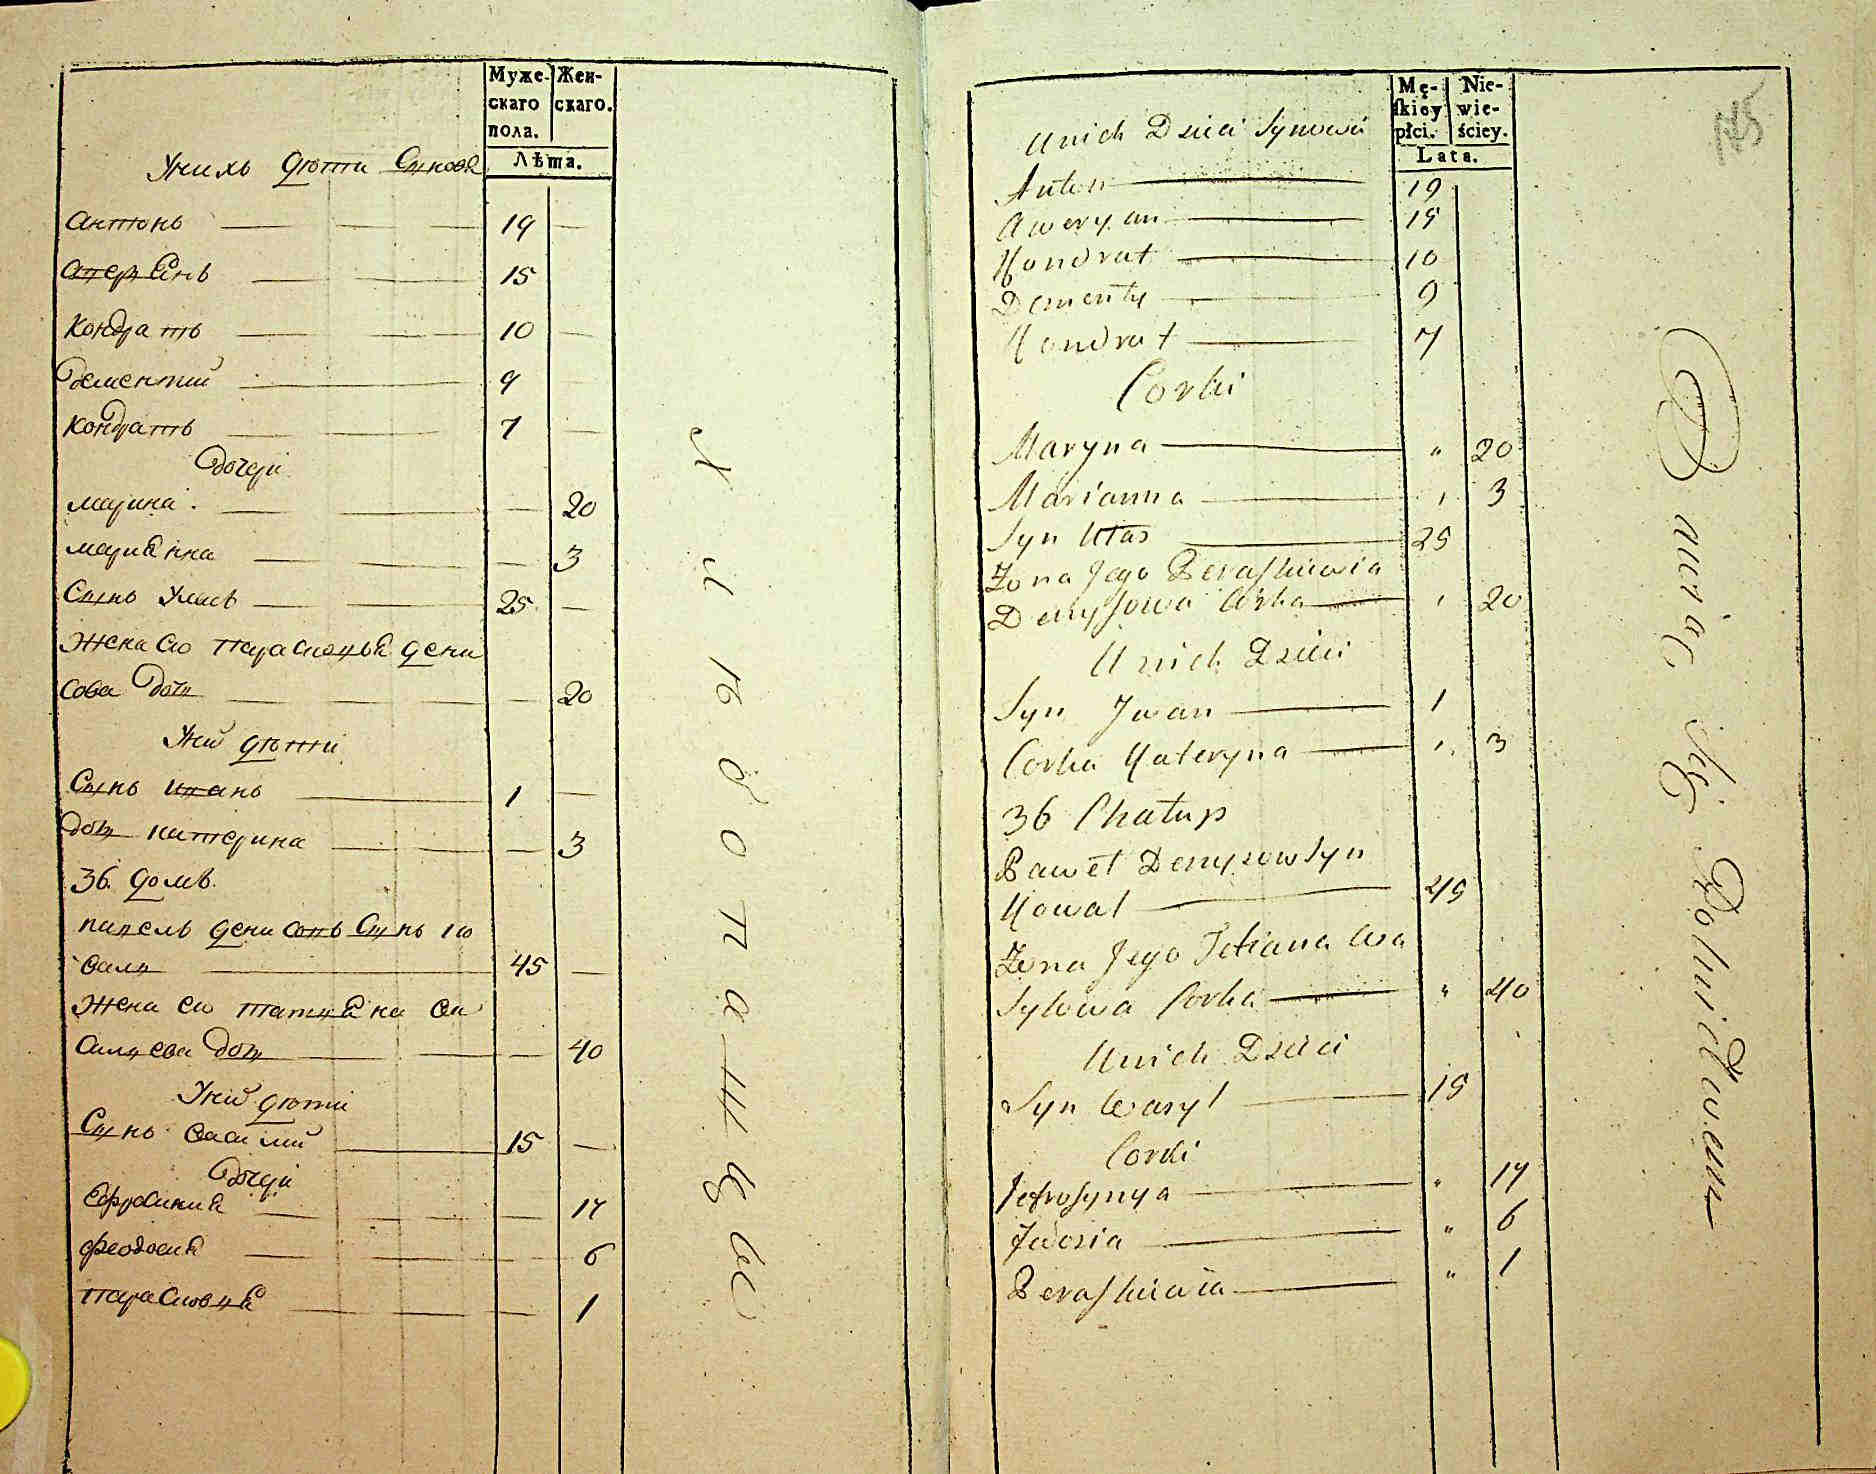 Муже-
скаго
пола.
Жен-
скаго.
Лѣта.
Унихъ дѣти Сынове
Антонъ 19 —
Аверянъ 15
Кондратъ 10 —
Дементий 9
Кондратъ 7 —
Дочери
Марина — 20
Мариянна — 3
Сынъ Уласъ 25 —
Жена его Парасковья Дени
сова Дочь — 20
Уних дѣти
Сынъ Иванъ 1 —
Дочь Катерина — 3
36. Домъ.
Павелъ Денисовъ Сынъ Ко
валь 45 —
Жена его Татияна Ва
силиева Дочь — 40
Уних дѣти
Сынъ Василий 15 —
Дочери
Ефросиния — 17
Феодосия — 6
Парасковия — 1
Хлѣбопашцы
Mę-
skiey
płci.
Nie-
wie-
ściey.
Lata.
145
Unich Dzieci Synowi
Anton 19
Aweryan 15
Kondrat 10
Dementy 9
Kondrat 7
Corki
Maryna " 20
Marianna " 3
Syn Ułas 25
Żona Jego Peraskiewia
Denysowa Corka " 20
Unich Dzieci
Syn Jwan 1
Corka Kateryna " 3
36 Chałup
Paweł Denysow Syn
Kowal 45
Żona Jego Tetiana Wa
sylowa Corka " 40
Unich Dzieci
Syn Wasyl 15
Corki
Jefrosynya " 17
Fedosia " 6
Peraskiewia " 1
Bawią się Rolnictwem